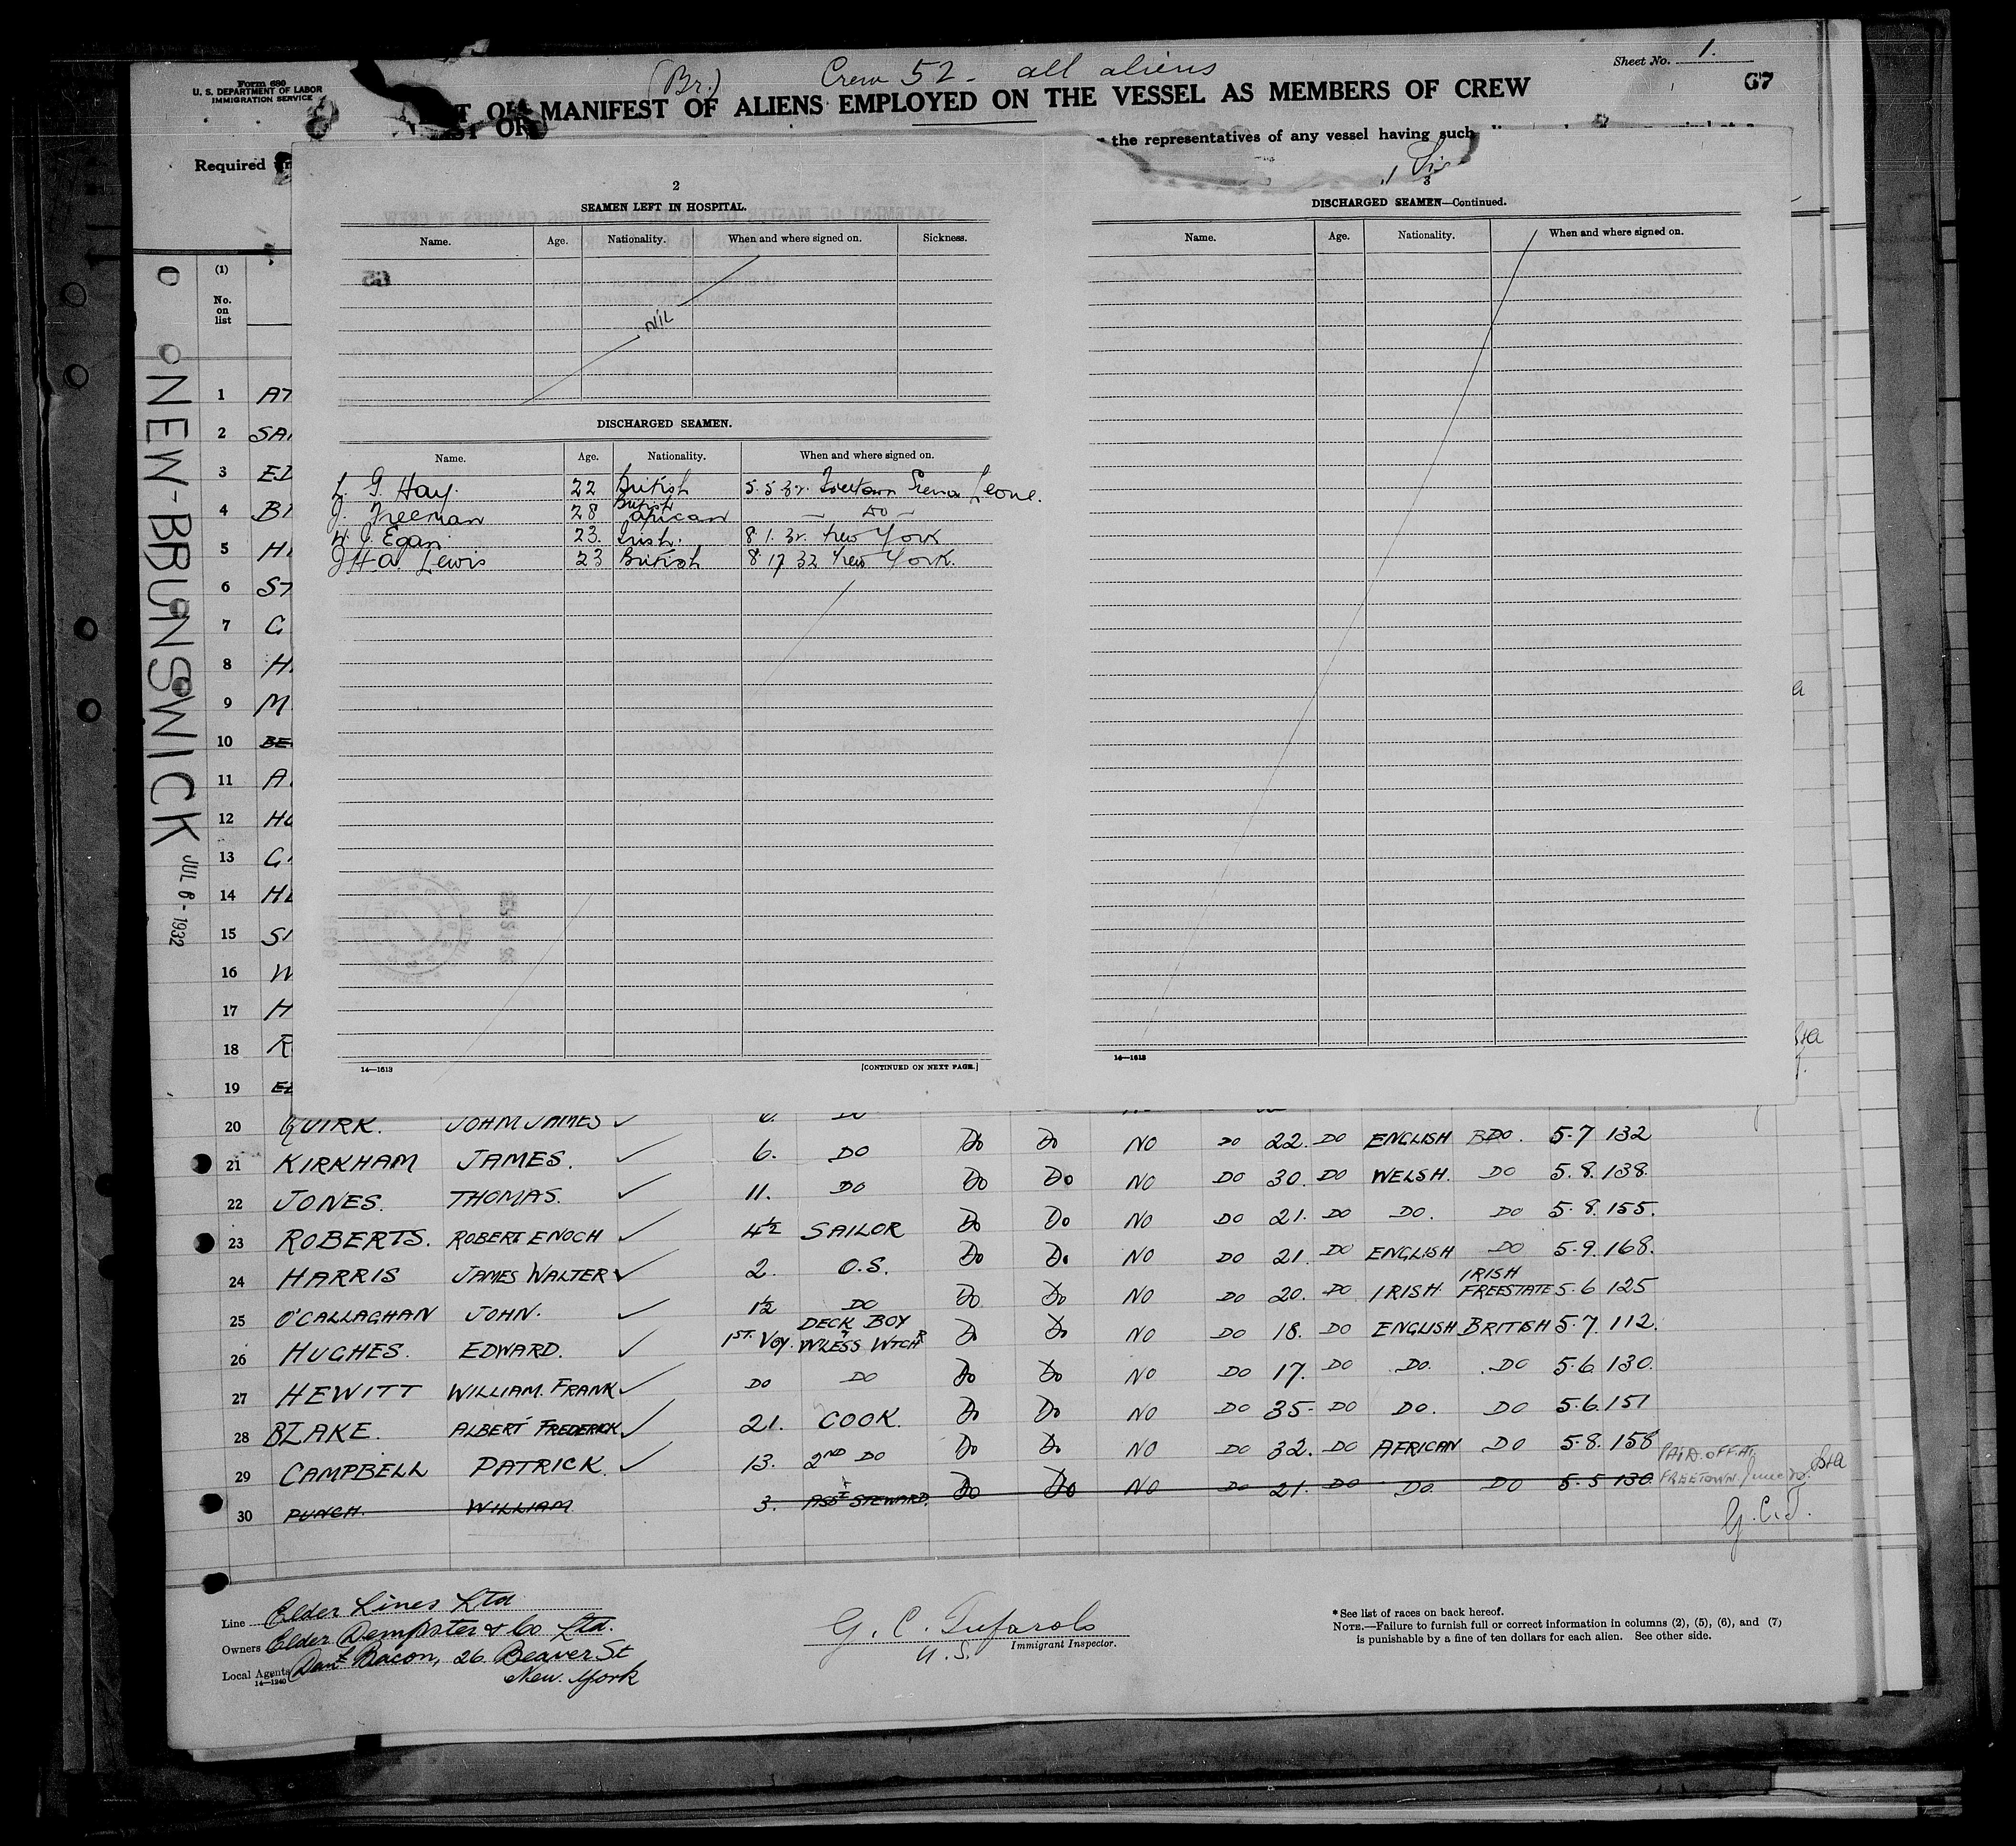 Form 680
U. S. DEPARTMENT OF LABOR
IMMIGRATION SERVICE
(Br.) Crew 52 - all aliens
Sheet No. 1.
67
MANIFEST OF ALIENS EMPLOYED ON THE VESSEL AS MEMBERS OF CREW
Required
the representatives of any vessel having such
NEW-BRUNSWICK JUL 6 - 1932
(1)
No.
on
list
2
SEAMEN LEFT IN HOSPITAL.
Name. Age. Nationality. When and where signed on. Sickness.
NIL
DISCHARGED SEAMEN.
Name. Age. Nationality. When and where signed on.
L. G. Hay. 22 British 5. 5 32. Freetown Sierra Leone.
J. Freeman 28 British African - DO -
W. J. Egan 23. Irish. 8. 1. 32. New York
J H A. Lewis 23 British 8 17 32 New York.
14—1613
[CONTINUED ON NEXT PAGE.]
3
DISCHARGED SEAMEN—Continued.
Name. Age. Nationality. When and where signed on.
14—1613
1 AT
2 SA
3 ED
4 B
5 H
6 ST
7 G
8 H
9 M
10 BE
11 A
12 HU
13 G
14 HE
15 SI
16 W
17 H
18 R
19 EL
20 QUIRK. JOHN JAMES 6. DO
21 KIRKHAM JAMES. 6. DO DO DO NO DO 22. DO ENGLISH DO. 5-7 132
22 JONES. THOMAS. 11. DO DO DO NO DO 30. DO WELSH. DO 5. 8. 138.
23 ROBERTS. ROBERT ENOCH 4½ SAILOR DO DO NO DO 21. DO DO. DO 5. 8. 155.
24 HARRIS JAMES WALTER 2. O.S. DO DO NO DO 21. DO ENGLISH DO 5. 9. 168.
25 O'CALLAGHAN JOHN. 1½ DO DO DO NO DO 20. DO IRISH IRISH FREESTATE 5. 6 125
26 HUGHES. EDWARD. 1ST. VOY. DECK BOY & W'LESS WTCHR DO DO NO DO 18. DO ENGLISH BRITISH 5. 7. 112.
27 HEWITT WILLIAM. FRANK DO DO DO DO NO DO 17. DO DO. DO 5. 6 130.
28 BLAKE. ALBERT FREDERICK 21. COOK. DO DO NO DO 35- DO DO. DO 5. 6. 151
29 CAMPBELL PATRICK. 13. 2ND DO DO DO NO DO 32. DO AFRICAN DO 5. 8. 158
30 PUNCH. WILLIAM 3. ASST STEWARD. DO DO NO DO 21. DO DO DO 5. 5 130 PAID OFF AT FREETOWN June
G.C.T.
Line Elder Lines Ltd
Owners Elder Dempster & Co. Ltd.
Local Agents Danl Bacon, 26 Beaver St
New. York
14—1240
G. C. Tufarolo
U. S. Immigrant Inspector.
* See list of races on back hereof.
NOTE.—Failure to furnish full or correct information in columns (2), (5), (6), and (7)
is punishable by a fine of ten dollars for each alien. See other side.